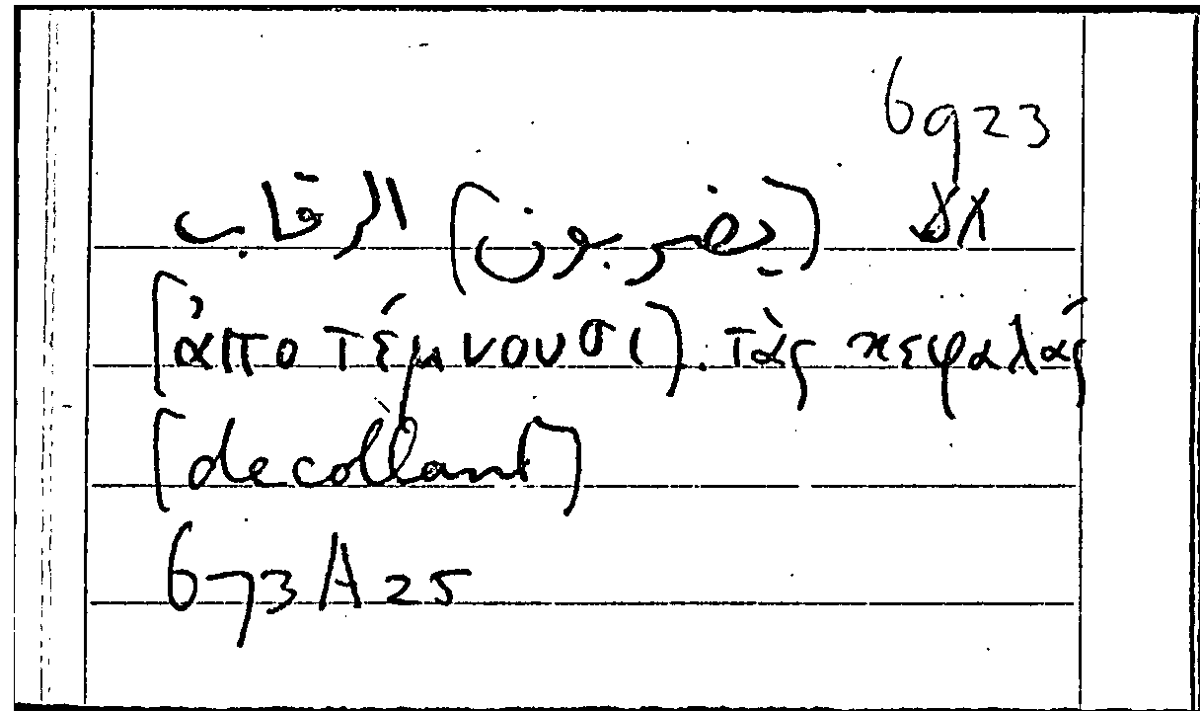 6923
(يضربون) الرقاب
(ἀποτέμνουσι). τὰς κεφαλάς
(decollant)
673A25